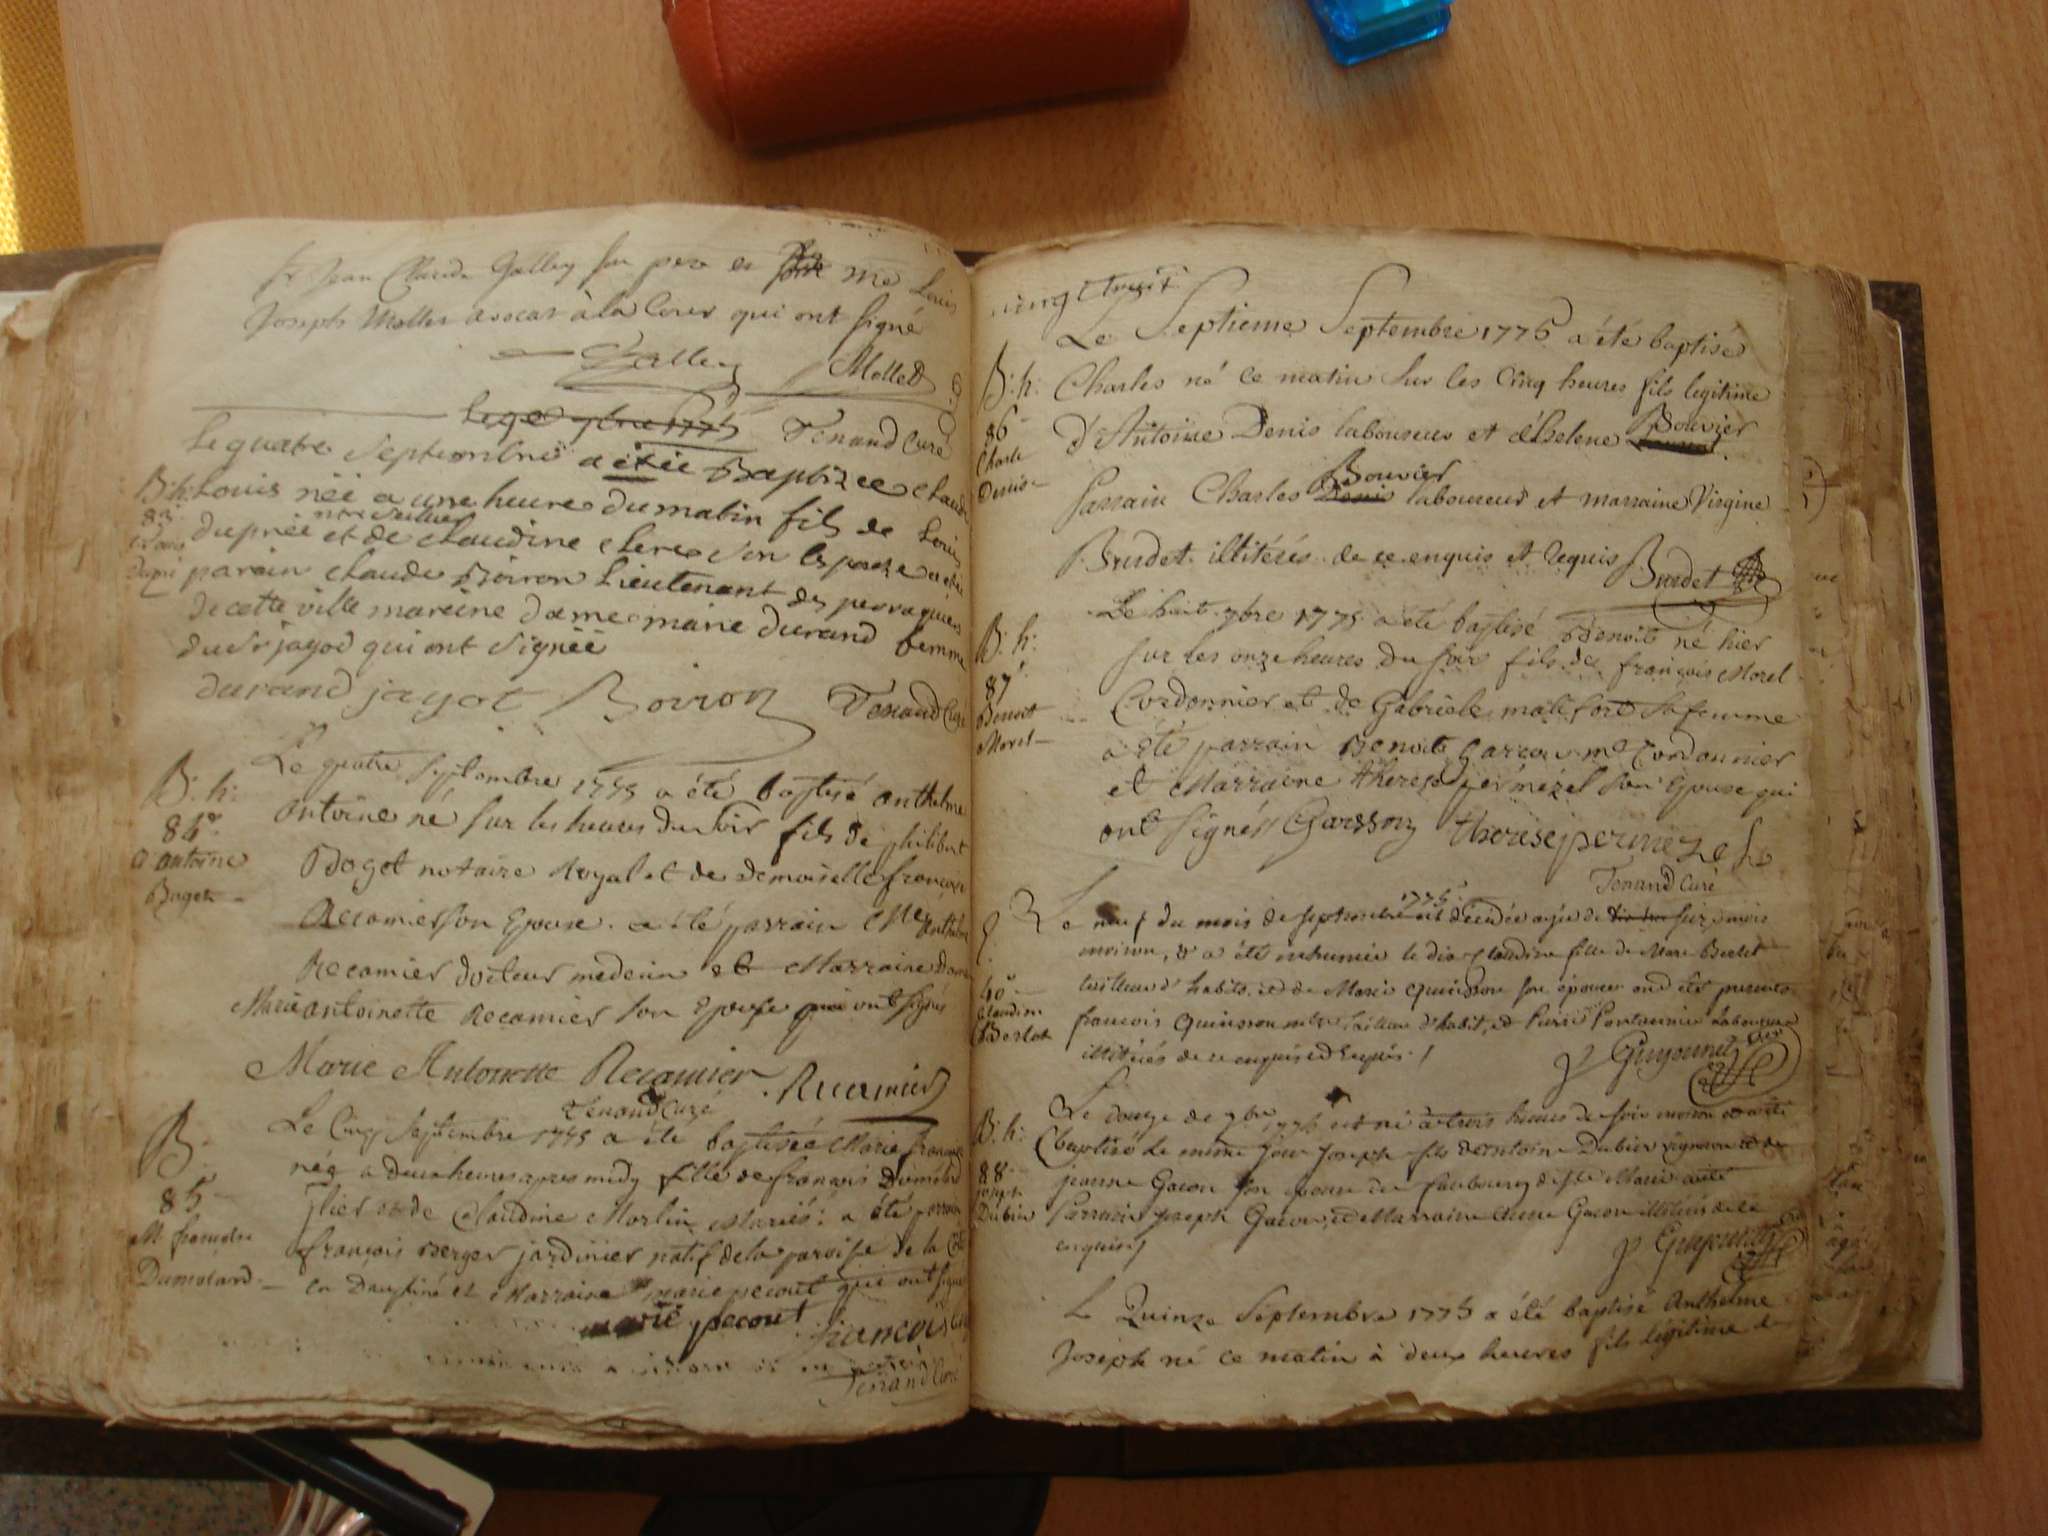 sr Jean Claude Galley son pere et me Louis
Joseph Mollet avocat à la Cour qui ont signé
Galley Mollet
Tenand Curé
Le quatre Septembre a étée Baptizee Claude
B: h: Louis néé a une heure du matin fils de Louis
dupréé et de Claudine Clerc son epouse
parain Claude Boiron Lieutenant des perruquiers
de cette ville mareine dame marie durand femme
du sr jayod qui ont signéé
durand jayot Boiron Tenand Curé
B. h: Le quatre Septembre 1775 a été baptisé anthelme
84e antoine né sur les heures du soir fils de philibert
a antoine
Boget notaire Royal et de demoiselle françoise
Boget
Recamier son Epouse. a été parrain Mre anthelme
Recamier docteur medecin et Marraine dame
Marie antoinette Recamier son Epouse qui ont signés
Marie Antoinette Recamier Recamier
Tenand Curé
B. Le Cinq Septembre 1775 a été baptisée Marie françoise
née a deux heures apres midy fille de françois Dumolard
85
et de Claudine Morlin Mariés: a été parrain
M françoise
françois Berger jardinier natif de la paroisse de la
Dumolard
en Dauphiné et Marraine marie pecout qui ont signé
marie pecout francois
Tenand Curé
vingt huit
Le Septieme Septembre 1775 a été baptisé
B: h: Charles né ce matin sur les cinq heures fils legitime
86
d'Antoine Denis laboureur et d'helene Bouvier
Charle
Denis
Parrain Charles Bouvier laboureur et marraine Virgine
Brudet illitérés de ce enquis et requis Burdet
B. h: Le huit 7bre 1775 a été baptisé Benoit né hier
sur les onze heures du soir fils de françois Morel
87
Benoit
Cordonnier et de Gabriele matefort sa femme
Morel
a été parrain Benoit Garcon me Cordonnier
et Marraine therese permezel son Epouse qui
ont signés Garsson therese permezel
Tenand Curé
Le neuf du mois de septembre 1775 est décédée agée de seize mois
environ, & a été inhumée le dix Claudine fille de Marc Berlet
40
tailleur d'habits, et de Marie Quinsson son épouse ont été presents
Claudine
Berlet
francois Quinsson mtre tailleur d'habit, et Pierre laboureur
illitérés de ce enquis et requis. /
P Guyonnet
B: h: Le douze de 7bre 1775 est né à trois heures du soir environ et a été
baptisé le même jour Joseph fils d'Antoine Dubier vigneron et de
88
jeanne Gacon son epouse du faubourg de ste Marie a été
joseph
Dubier
Parrain joseph Gacon, et Marraine anne Gacon illitérés de ce
enquis /
P Guyonnet
Le Quinze Septembre 1775 a été baptisé Anthelme
Joseph né ce matin à deux heures fils légitime de